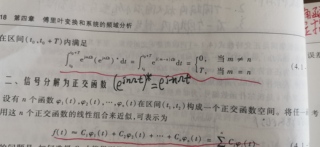 18 第四章 傅里叶变换和系统的频域分析
在区间(t₀,t₀+T)内满足
∫ e^{jmΩt}(e^{jnΩt})* dt = ∫ e^{j(m-n)Ωt} dt = {0, 当 m ≠ n
T, 当 m = n
(4.1-
二、信号分解为正交函数 (e^{jnΩt})* = e^{-jnΩt}
设有 n 个函数 φ₁(t),φ₂(t),⋯,φₙ(t)在区间(t₁,t₂)构成一个正交函数空间。将任一
用这 n 个正交函数的线性组合来近似,可表示为
f(t) ≈ C₁φ₁(t) + C₂φ₂(t) + ⋯ + Cₙφₙ(t) = Σ Cⱼφⱼ(t)